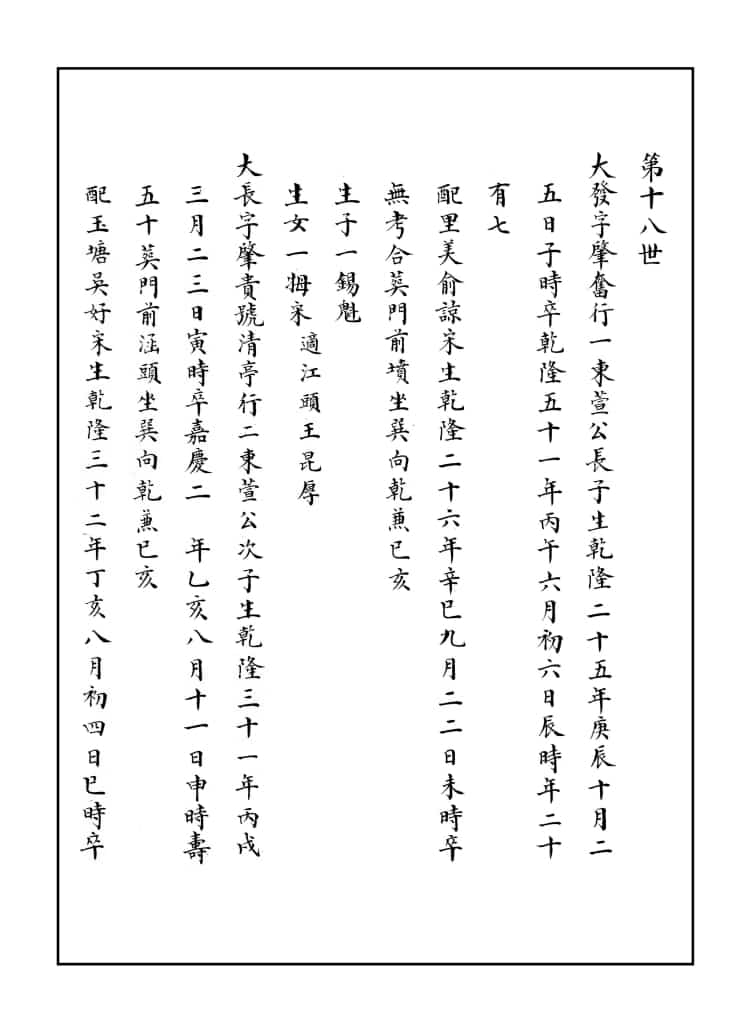 第十八世
大發字肇奮行一東萱公長子生乾隆二十五年庚辰十月二
五日子時卒乾隆五十一年丙午六月初六日辰時年二十
有七
配里美俞諒宋生乾隆二十六年辛巳九月二二日未時卒
無考合葬門前墳坐巽向乾兼已亥
生子一錫魁
生女一姆宋適江頭王昆厚
大長字肇貴號清亭行二東萱公次子生乾隆三十一年丙戌
三月二三日寅時卒嘉慶二 年乙亥八月十一日申時壽
五十葬門前涵頭坐巽向乾兼已亥
配玉塘吳好宋生乾隆三十二年丁亥八月初四日巳時卒